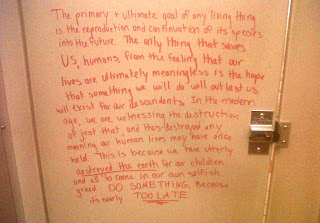 The primary + ultimate goal of any living thing
is the reproduction and continuation of its species
into the future. The only thing that saves
US, humans, from the feeling that our
lives are ultimately meaningless is the hope
that something we will do will out last us
will exist for our descendents. In the modern
age, we are witnessing the destruction
of just that, and thus destroying any
meaning our human lives may have once
held. This is because we have utterly
destroyed this earth for our children
and all to come in our own selfish
greed DO SOMETHING, Because
its nearly TOO LATE